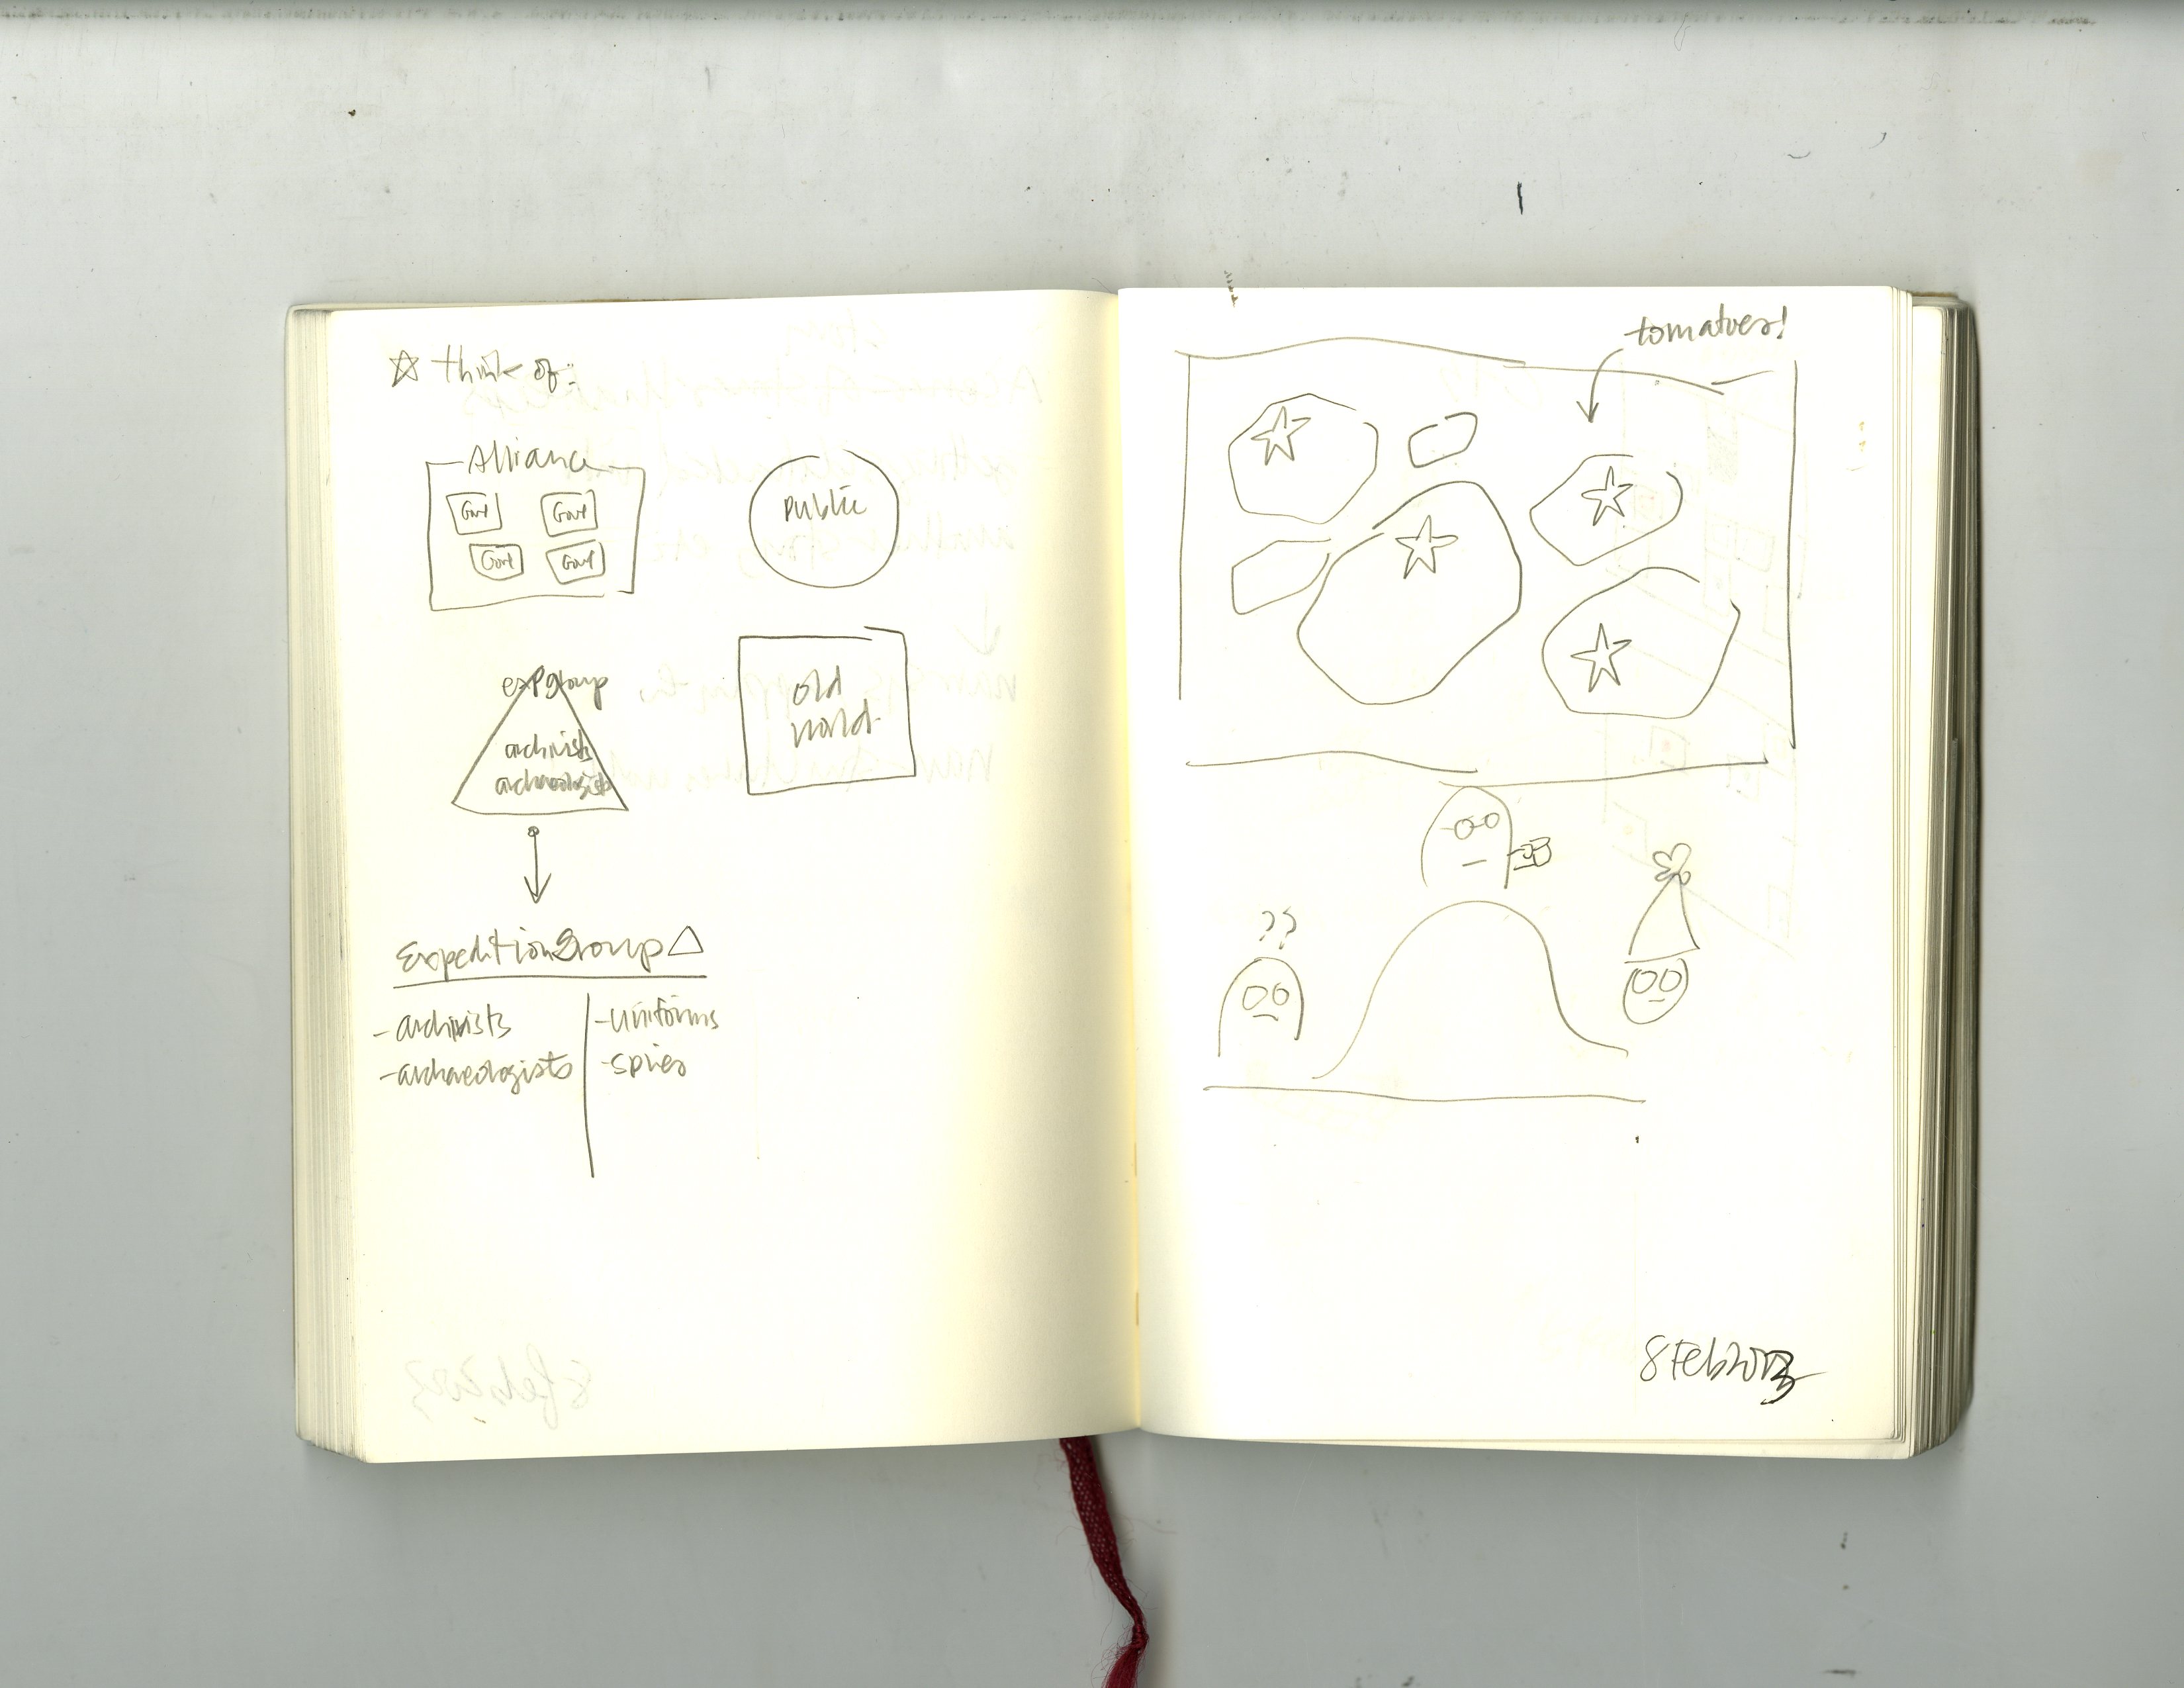 ☆ think of:
Alliance
Govt Govt
Govt Govt
public
exp group
archivists
archaeologists
old
world
Expedition Group △
- archivists
- archaeologists
- uniforms
- spies
tomatoes!
??
8 Feb 2013